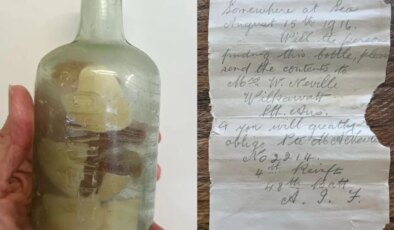 Somewhere at Sea
August 15th 1916.
Will the person
finding this bottle, please
send the contents to
Mrs W. Neville
Wilkawatt
Sth. Aus.
& you will greatly
oblige
No 2214.
4th Reinfts
48th Batt
A. I. F.